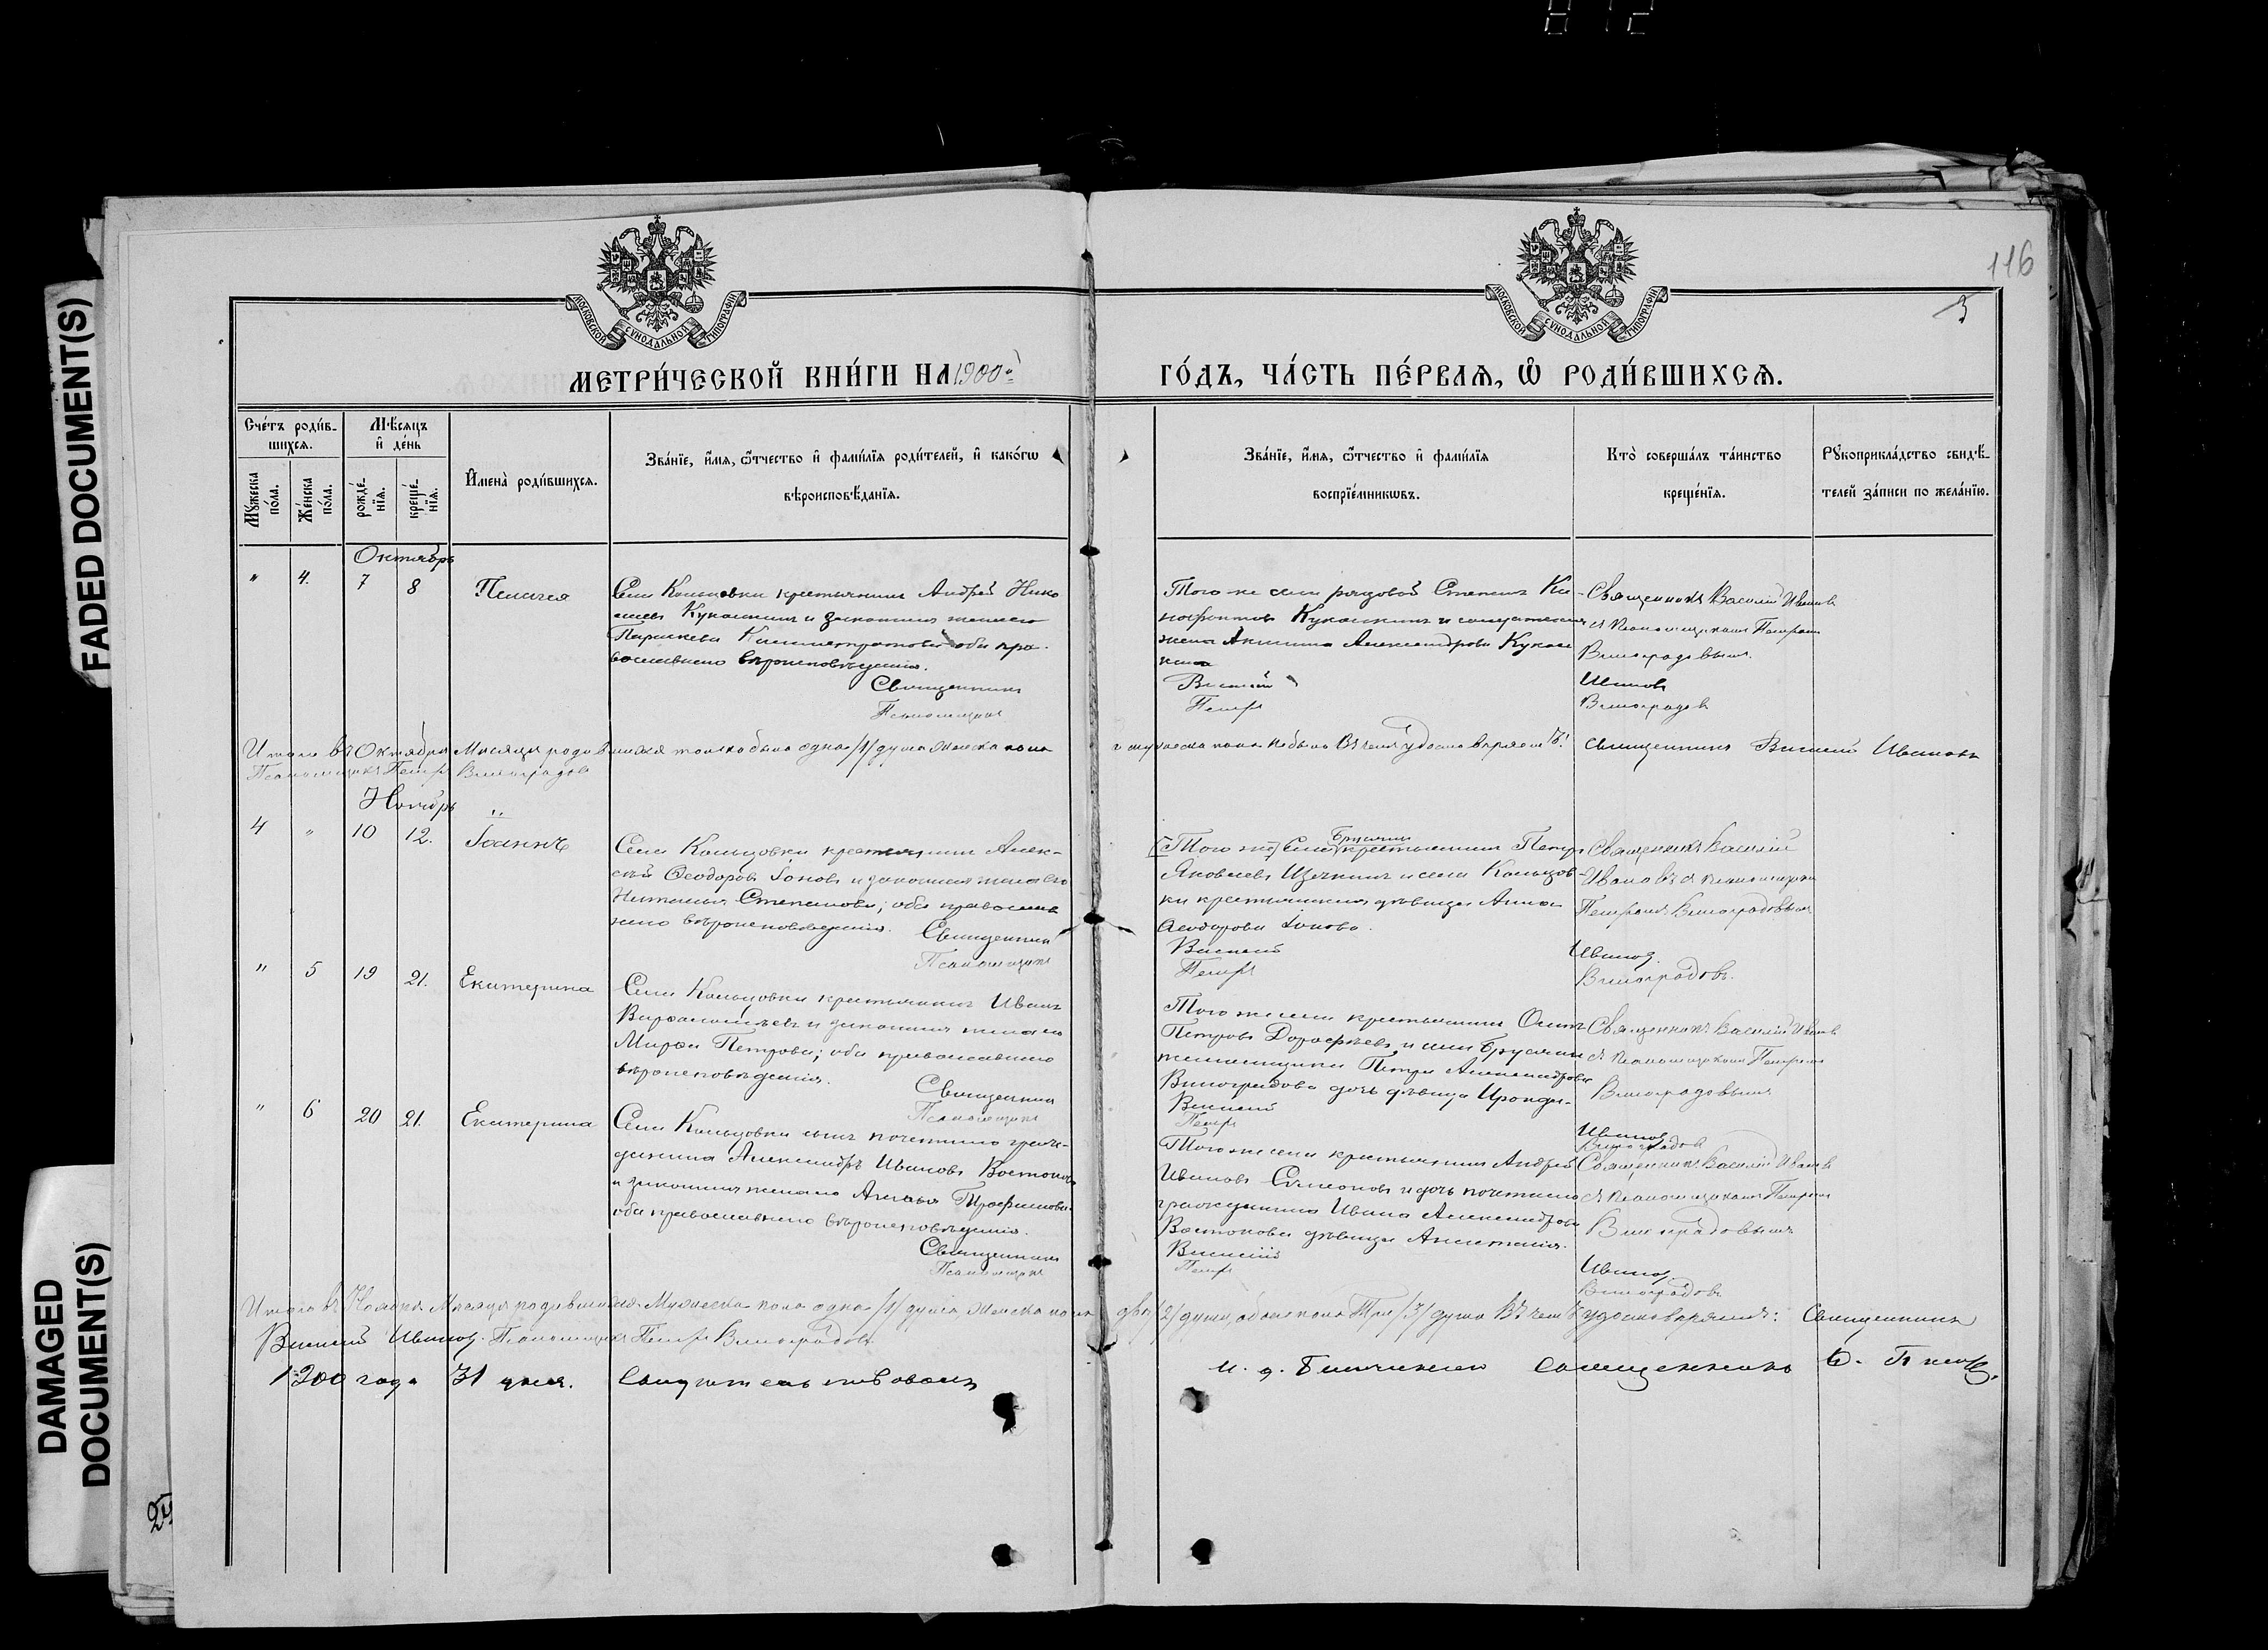 116
3
FADED DOCUMENT(S)
DAMAGED DOCUMENT(S)
МОСКОВСКОЙ СѴНОДАЛЬНОЙ ТИПОГРАФІИ
МОСКОВСКОЙ СѴНОДАЛЬНОЙ ТИПОГРАФІИ
МЕТРИ́ЧЕСКОЙ КНИ́ГИ НА 1900й ГО́ДЪ, ЧА́СТЬ ПЕ́РВАѦ, Ѡ РОДИ́ВШИХСѦ.
Счетъ родив-
шихсѧ.
Мужеска пола.
Женска пола.
Мѣсяцъ
и день
рожде-
нїѧ.
креще-
нїѧ.
Имена родившихсѧ.
Званїе, имѧ, ѻтчество и фамилїѧ родителей, и какогѡ
вѣроисповѣданїѧ.
Званїе, имѧ, ѻтчество и фамилїѧ
воспрїемникѡвъ.
Кто совершалъ таинство
крещенїѧ.
Рꙋкоприкладство свидѣ-
телей записи по желанїю.
Октябрь
" 4. 7 8 Пелагея
Села Кольцовки крестьянинъ Андрей Нико
лаевъ Кукошкинъ и законная жена его
Параскева
обы пра-
вославнаго вѣроисповѣданія.
Священникъ
Псаломщикъ
Того же села рядовой Степанъ
жена Акилина Александрова
Василій
Петръ
Священникъ Василій Ивановъ
съ псаломщикомъ Петромъ
Виноградовымъ.
Ивановъ
Виноградовъ
Итого въ Октябрѣ Мѣсяцѣ родившихся только была одна /1/ душа женска пола а мужеска пола не было Въ чемъ удостовѣряемъ: Священникъ Василій Ивановъ
Псаломщикъ Петръ Виноградовъ
Ноябрь
4 " 10 12. Іоаннъ
Села Кольцовки крестьянинъ Алек-
сѣй Ѳеодоровъ Іоновъ и законная жена его
Наталья Степанова; оба православ
наго вѣроисповѣданія.
Священникъ
Псаломщикъ
[Того же] Села Брусяны крестьянинъ Петръ
Яковлевъ и села Кольцов
ки крестьянская дѣвица Анна
Ѳеодорова Іонова.
Василій
Петръ
Священникъ Василій
Ивановъ съ псаломщикомъ
Петромъ Виноградовымъ
Ивановъ.
Виноградовъ.
" 5 19 21. Екатерина
Села Кольцовки крестьянинъ Иванъ
и законная жена его
Марѳа Петрова; оба православнаго
вѣроисповѣданія.
Священникъ
Псаломщикъ
Того же села крестьянинъ Осипъ
Петровъ Дорофеевъ и села Брусянъ
псаломщика Петра Александрова
Виноградова дочь дѣвица
Василій
Петръ
Священникъ Василій Ивановъ
съ псаломщикомъ Петромъ
Виноградовымъ
Ивановъ
Виноградовъ
" 6 20 21. Екатерина
Села Кольцовки сынъ почетнаго граж-
данина Александръ Ивановъ Востоковъ
и законная жена его Агаѳья Трофимова
оба православнаго вѣроисповѣданія.
Священникъ
Псаломщикъ
Того же села крестьянинъ Андрей
Ивановъ Симеоновъ и дочь почетнаго
гражданина Ивана Александрова
Востокова дѣвица Анастасія.
Василій
Петръ
Священникъ Василій Ивановъ
съ псаломщикомъ Петромъ
Виноградовымъ
Ивановъ
Виноградовъ
Итого въ Ноябрѣ Мѣсяцѣ родившихся Мужеска пола одна /1/ душа женска пола двѣ /2/ души, обоего пола Три /3/ души Въ чемъ удостовѣряемъ: Священникъ
Василій Ивановъ. Псаломщикъ Петръ Виноградовъ
1900 года 31 дня. Свидѣтельствовалъ и. д. Благочиннаго священникъ